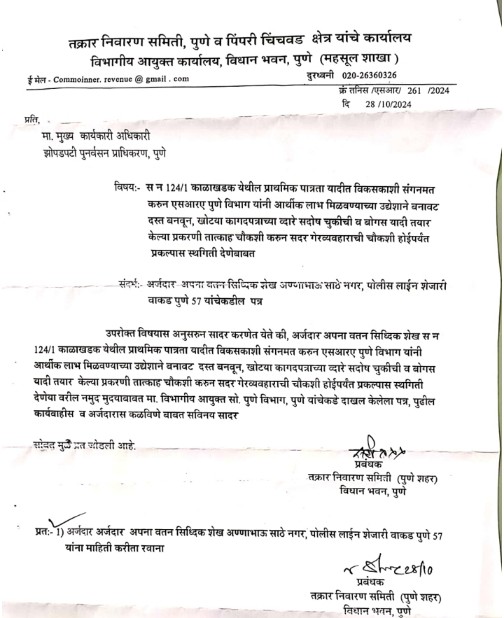 तक्रार निवारण समिती, पुणे व पिंपरी चिंचवड क्षेत्र यांचे कार्यालय
विभागीय आयुक्त कार्यालय, विधान भवन, पुणे (महसूल शाखा )
ई मेल - Commoinner. revenue @ gmail . com दुरध्वनी 020-26360326
क्रं तनिस /एसआर/ 261 /2024
दि 28 /10/2024
प्रति,
मा. मुख्य कार्यकारी अधिकारी
झोपडपटी पुनर्वसन प्राधिकरण, पुणे
विषय:- स न 124/1 काळाखडक येथील प्राथमिक पात्रता यादीत विकसकाशी संगनमत
करुन एसआरए पुणे विभाग यांनी आर्थीक लाभ मिळवण्याच्या उद्येशाने बनावट
दस्त बनवून, खोटया कागदपत्राच्या व्दारे सदोष चुकीची व बोगस यादी तयार
केल्या प्रकरणी तात्काह चौकशी करुन सदर गेरव्यवहाराची चौकशी होईपर्यंत
प्रकल्पास स्थगिती देणेबाबत
संदर्भ:- अर्जदार अपना वतन सिध्दिक शेख अण्णाभाऊ साठे नगर, पोलीस लाईन शेजारी
वाकड पुणे 57 यांचेकडील पत्र
उपरोक्त विषयास अनुसरुन सादर करणेत येते की, अर्जदार अपना वतन सिध्दिक शेख स न
124/1 काळाखडक येथील प्राथमिक पात्रता यादीत विकसकाशी संगनमत करुन एसआरए पुणे विभाग यांनी
आर्थीक लाभ मिळवण्याच्या उद्येशाने बनावट दस्त बनवून, खोटया कागदपत्राच्या व्दारे सदोष चुकीची व बोगस
यादी तयार केल्या प्रकरणी तात्काह चौकशी करुन सदर गेरव्यवहाराची चौकशी होईपर्यंत प्रकल्पास स्थगिती
देणेया वरील नमुद मुदयाबाबत मा. विभागीय आयुक्त सो. पुणे विभाग, पुणे यांचेकडे दाखल केलेला पत्र, पुढील
कार्यवाहीस व अर्जदारास कळविणे बाबत सविनय सादर
सोबत मुळ प्रत जोडली आहे.
प्रबंधक
तक्रार निवारण समिती (पुणे शहर)
विधान भवन, पुणे
प्रत:- 1) अर्जदार अर्जदार अपना वतन सिध्दिक शेख अण्णाभाऊ साठे नगर, पोलीस लाईन शेजारी वाकड पुणे 57
यांना माहिती करीता रवाना
28/10
प्रबंधक
तक्रार निवारण समिती (पुणे शहर)
विधान भवन, पुणे